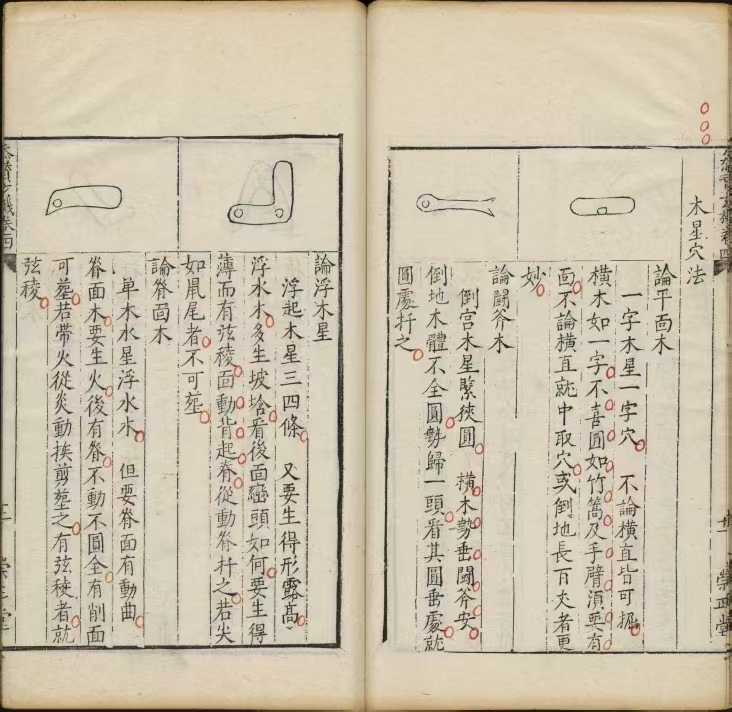 木星穴法
論平面木
一字木星一字穴 不論橫直皆可掘
橫木如一字不喜圓如竹篙及手臂須要有
面不論橫直就中取穴或倒地長百丈者更
妙
論鬪斧木
倒宮木星緊挾圓 橫木勢垂鬪斧安
倒地木體不全圓勢歸一頭看其圓垂處就
圓處扦之
論浮木星
浮起木星三四條 又要生得形露高
浮水木多生坡塝看後面巒頭如何要生得
薄而有弦稜面動背起脊從動脊扦之若尖
如鼠尾者不可塟
論脊面木
單木水星浮水木 但要脊面有動曲
脊面木要生火後有脊不動不圓全有削面
可塟若帶火從炎動挨剪塟之有弦稜者就
弦稜